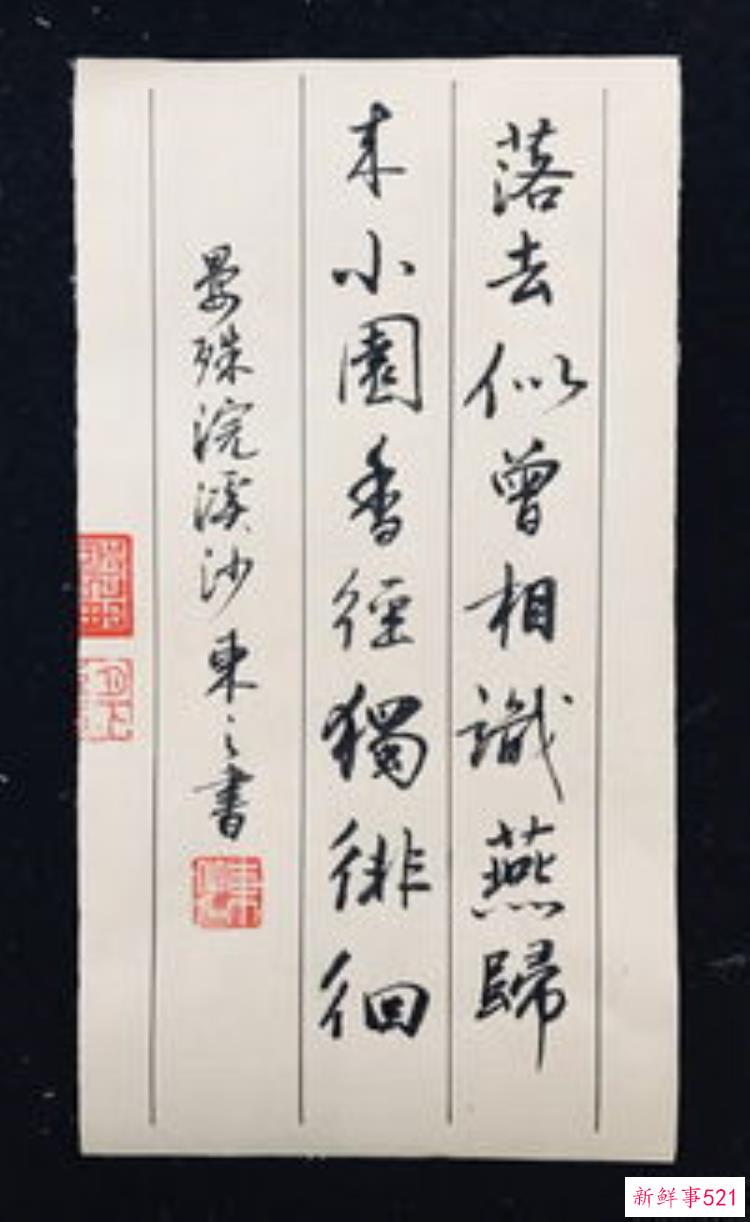 落去似曾相識燕歸
来小園香徑獨徘徊
晏殊浣溪沙東之書
新鲜事521